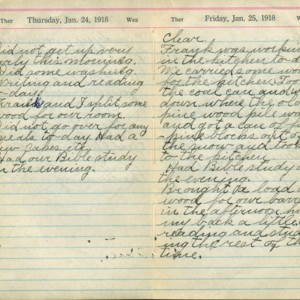 Ther Thursday, Jan. 24, 1918 Wea
did not get up very
early this morning.
Did some washing.
Writing and reading
to day.
Frank and I split some
wood for our room.
Did not go over for any
to day. Had a
few
Had our Bible study
in the evening.
Ther Friday, Jan. 25, 1918 Wea
Clear
Frank was workin
in the kitchen to d
We carried some wo
for the kitchen
the coal care and w
down where the ol
pine wood pile wa
and got a can o
pine blocks out o
the snow and too
to the kitchen
Had Bible study
the evening.
Brought a load
wood for our barre
in the afternoon
my back a litt
reading and stud
ing the rest of th
time.